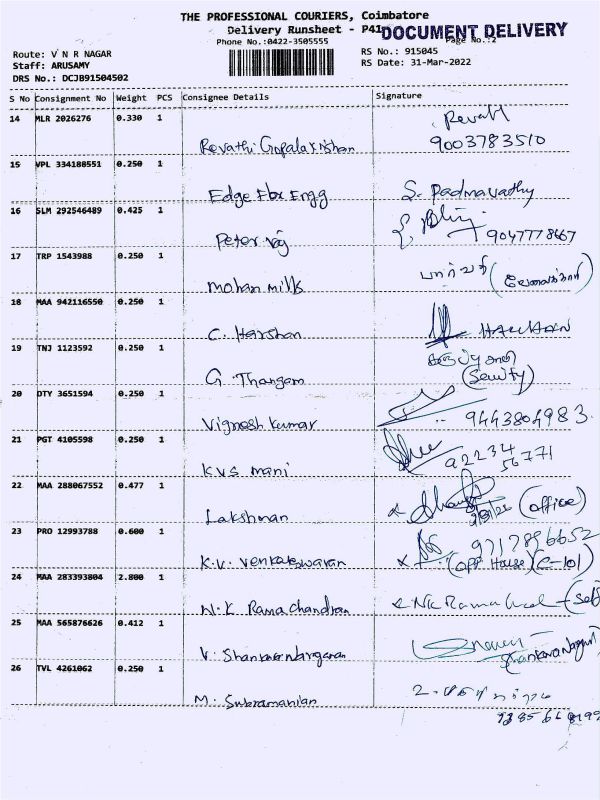 THE PROFESSIONAL COURIERS, Coimbatore
Delivery Runsheet - P41
DOCUMENT DELIVERY
Phone No.:0422-3505555
Page No.:2
Route: V N R NAGAR
RS No.: 915045
Staff: ARUSAMY
RS Date: 31-Mar-2022
DRS No.: DCJB91504502
S No Consignment No Weight PCS Consignee Details Signature
14 MLR 2026276 0.330 1
Revathi Gopalakrishnan 9003783510
15 VPL 334188551 0.250 1
Edge Fbx Engg S. Padmavathy
16 SLM 292546489 0.425 1
Peter Raj
17 TRP 1543988 0.250 1
Mohan Mills பார்வதி
18 MAA 942116550 0.250 1
C. Harshan
19 TNJ 1123592 0.250 1
G. Thangam
20 DTY 3651594 0.250 1
Vignesh Kumar 9443804983
21 PGT 4105598 0.250 1
92234
56771
KVS mani
22 MAA 288067552 0.477 1
Lakshman (office)
23 PRO 12993788 0.600 1
9717896652
K.V. Venkateswaran (opp House) (C-101)
24 MAA 283393804 2.800 1
N.K Ramachandran
25 MAA 565876626 0.412 1
V. Shankarnarayanan
26 TVL 4261062 0.250 1
M. Subramanian